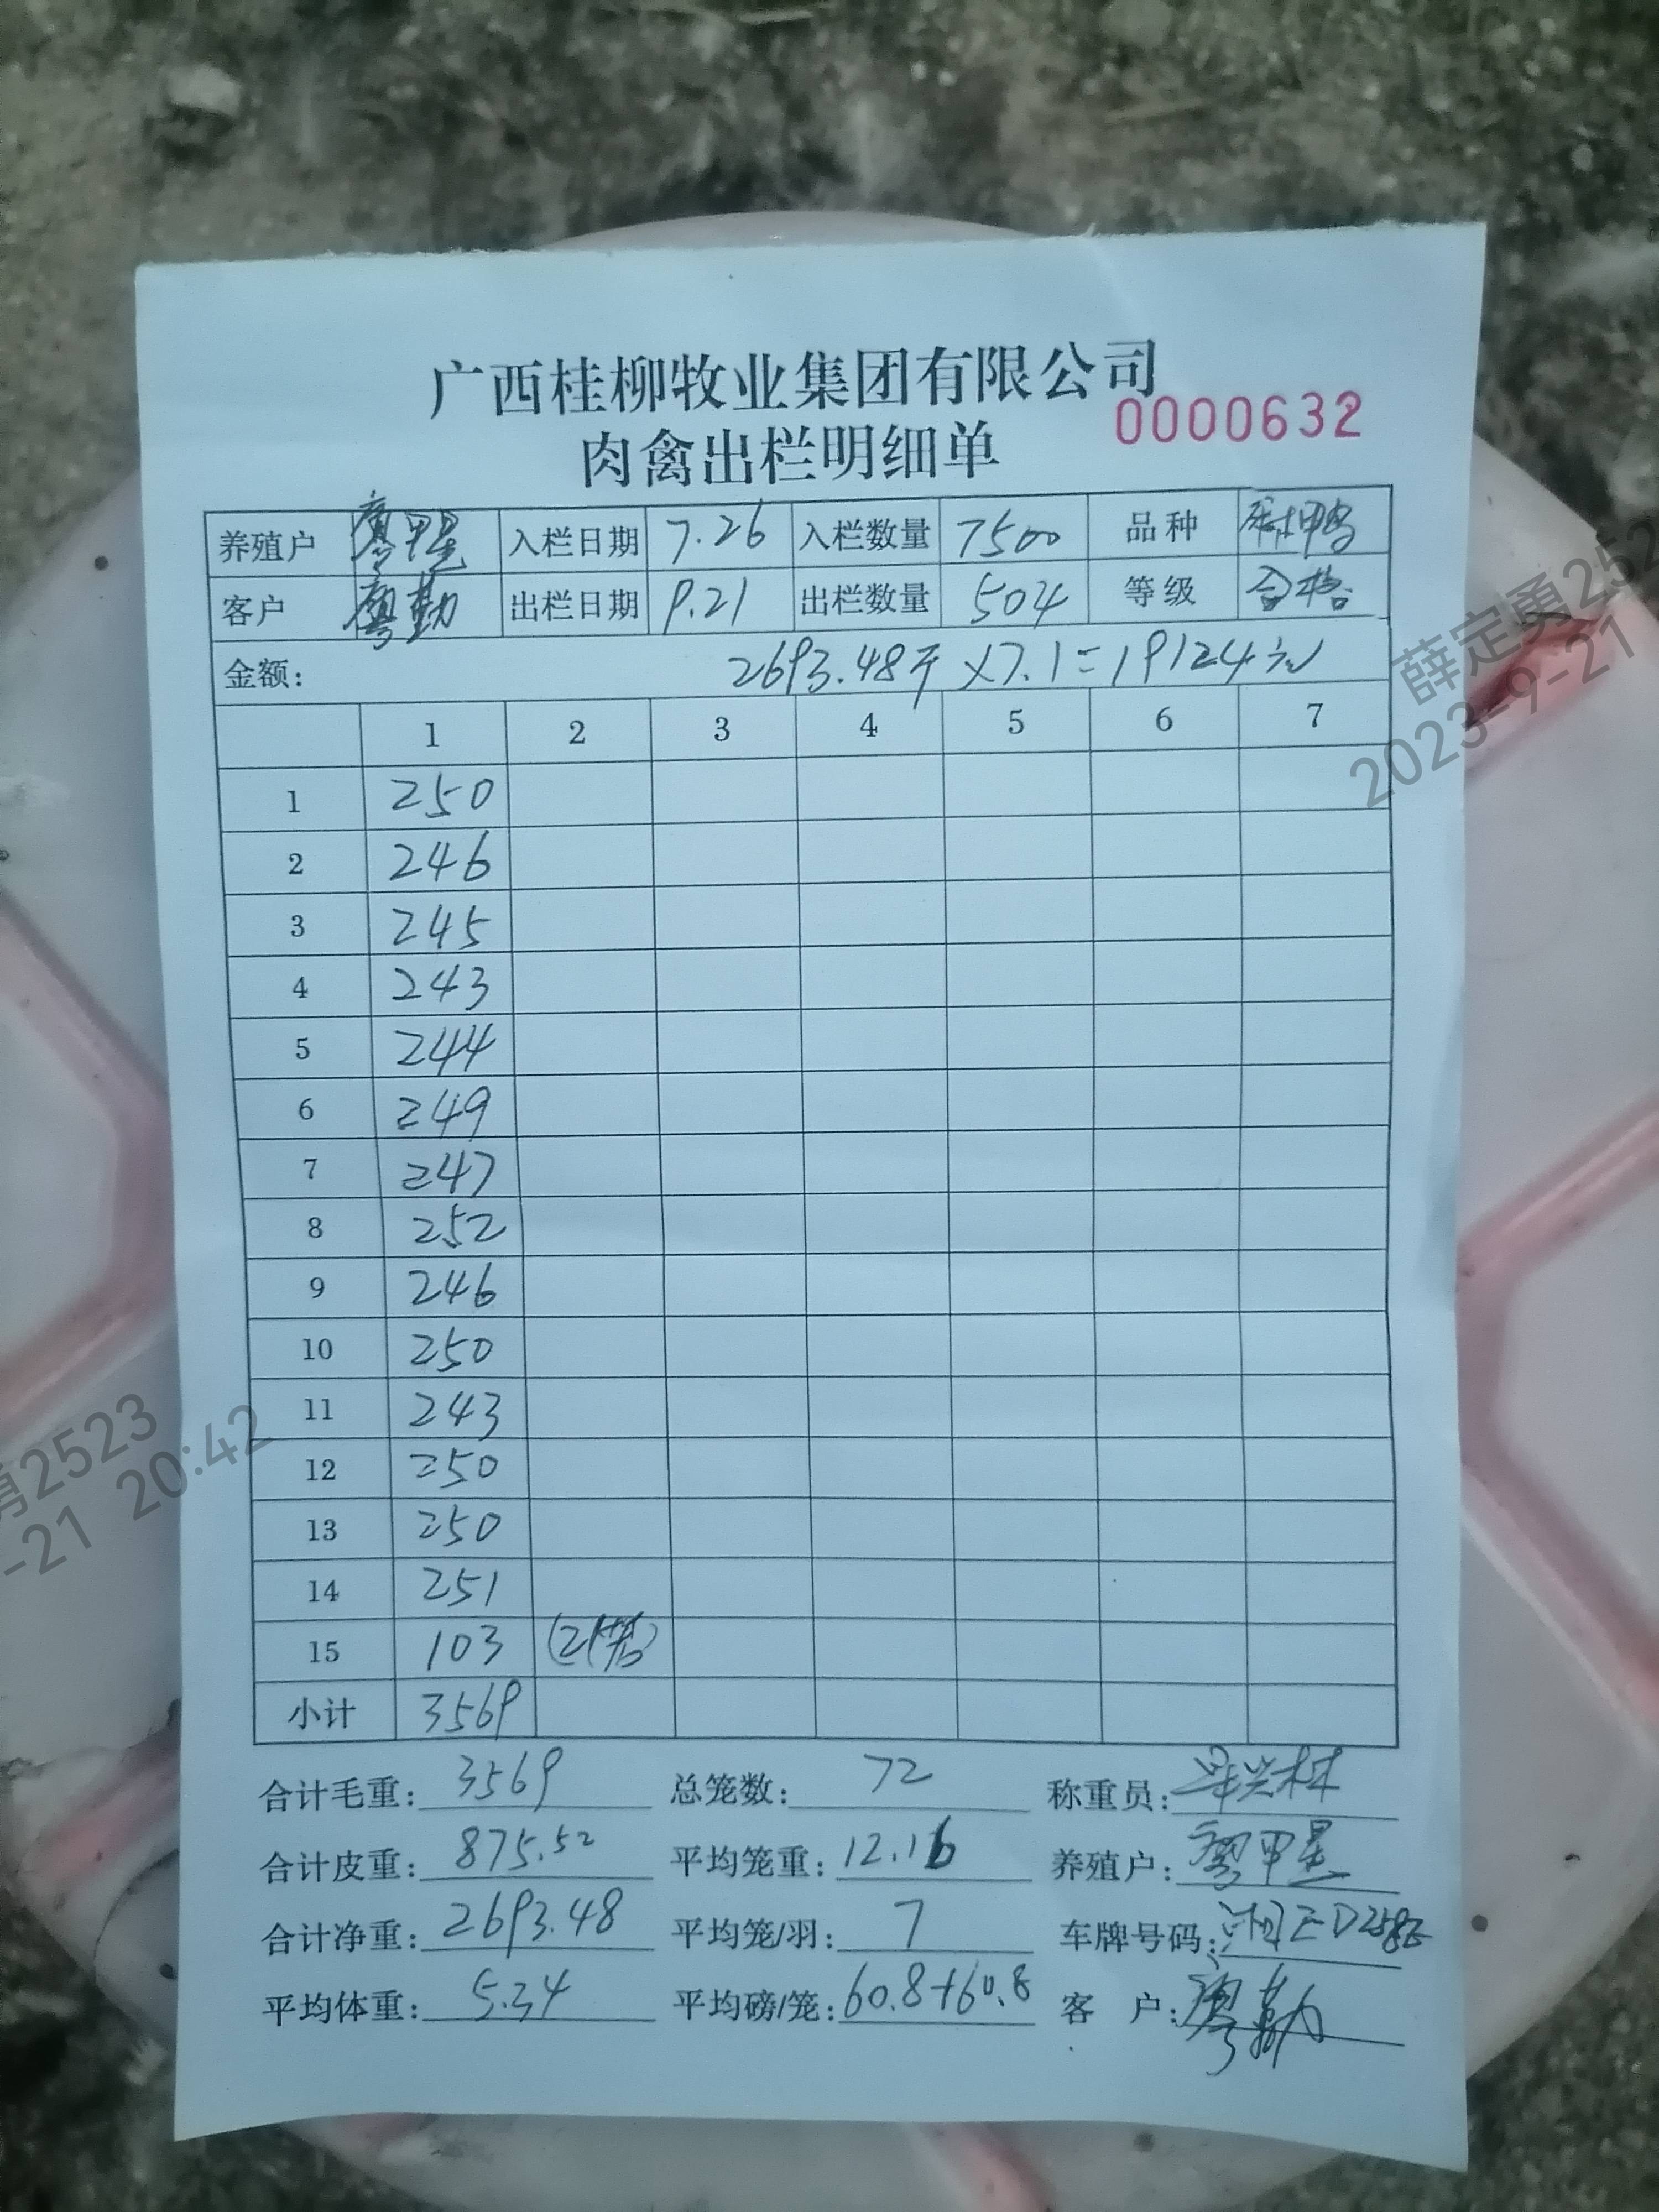 广西桂柳牧业集团有限公司
0000632
肉禽出栏明细单
养殖户 廖甲星 入栏日期 7.26 入栏数量 7500 品种 麻鸭
客户 廖勤 出栏日期 9.21 出栏数量 504 等级 合格
金额: 2693.48斤×7.1=19124元
1 2 3 4 5 6 7
1 250
2 246
3 245
4 243
5 244
6 249
7 247
8 252
9 246
10 250
11 243
12 250
13 250
14 251
15 103
小计 3569
合计毛重: 3569 总笼数: 72 称重员:
合计皮重: 875.52 平均笼重: 12.16 养殖户: 廖甲星
合计净重: 2693.48 平均笼/羽: 7 车牌号码:
平均体重: 5.34 平均磅/笼: 60.8+60.8 客 户: 廖勤
薛定勇252
2023-9-21
勇2523
-21 20:42